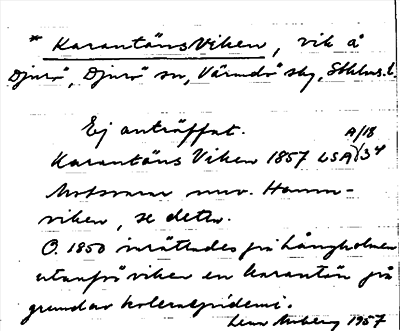 * Karantäns Viken, vik å
Djurö, Djurö sn, Värmdö skg, Sthlms l.
Ej anträffat.
Karantäns Viken 1857 LSA A/18 34
Motsvarar nuv. Hamn-
viken, se detta.
O. 1850 inrättades på Långholmen
utanför viken en karantän på
grund av koleraepidemi.
1957